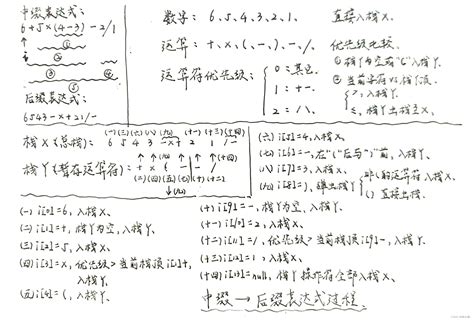 中缀表达式:
6+5×(4-3)-2/1
① ② ③ ④ ⑤
后缀表达式:
6543-×+21/-
数字: 6、5、4、3、2、1. 直接入栈X.
运算: +、×、(、-、)、-、/. 优先级比较.
运算符优先级: { 0: 其它.
1: +-.
2: /\.
① 栈Y为空或"("入栈Y.
② 当前字符 栈Y顶
>, 入栈Y.
≤, 栈Y出栈至X.
栈X(总栈): 6 5 4 3 - × + 2 1 / -
栈Y(暂存运算符): + × ( - - /
(一) i[0]=6, 入栈X.
(二) i[1]=+, 栈Y为空, 入栈Y.
(三) i[2]=5, 入栈X.
(四) i[3]=×, 优先级>当前栈顶i[1]+, 入栈Y.
(五) i[4]=(, 入栈Y.
(六) i[5]=4, 入栈X.
(七) i[6]=-, 在"("后与")"前, 入栈Y.
(八) i[7]=3, 入栈X.
(九) i[8]=), 弹出栈Y { 非()的运算符入栈X.
() 直接出栈.
(十) i[9]=-, 栈Y为空, 入栈Y.
(十一) i[10]=2, 入栈X.
(十二) i[11]=/, 优先级>当前栈顶i[9]-, 入栈Y.
(十三) i[12]=1, 入栈X.
(十四) i[13]=null, 栈Y 全部入栈X.
中缀→后缀表达式过程.